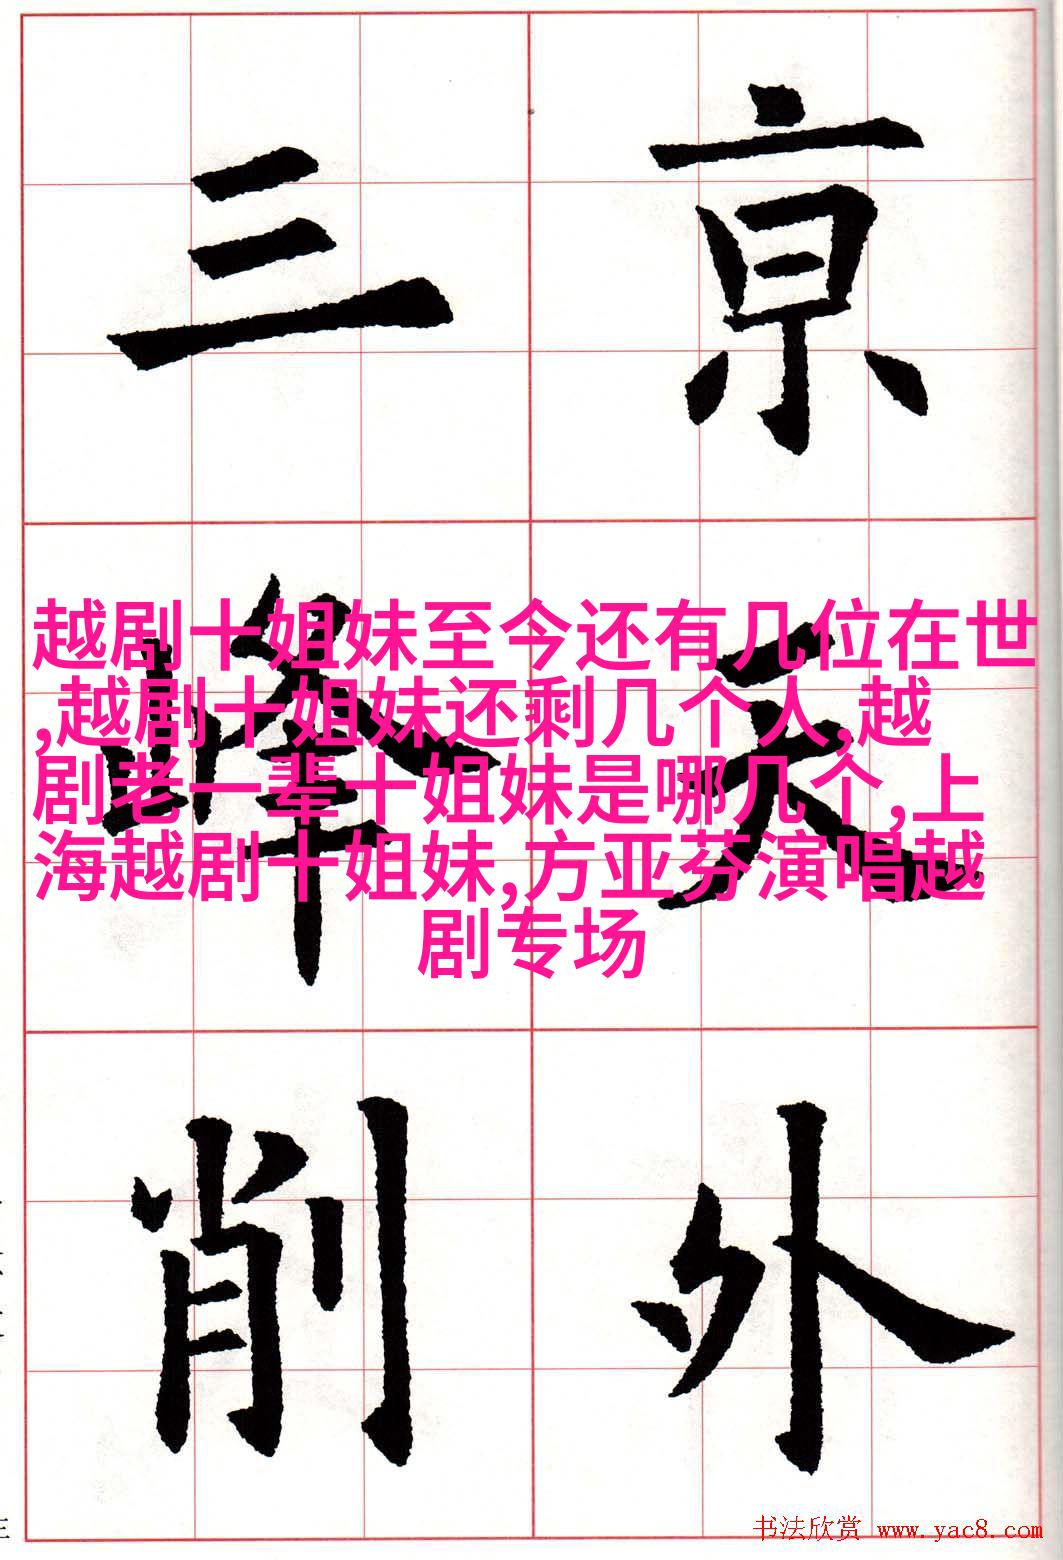 京天外
三峰削
越剧十姐妹至今还有几位在世
,越剧十姐妹还剩几个人,越
剧老一辈十姐妹是哪几个,上
海越剧十姐妹,方亚芬演唱越
剧专场
书法欣赏 www.yac8.com